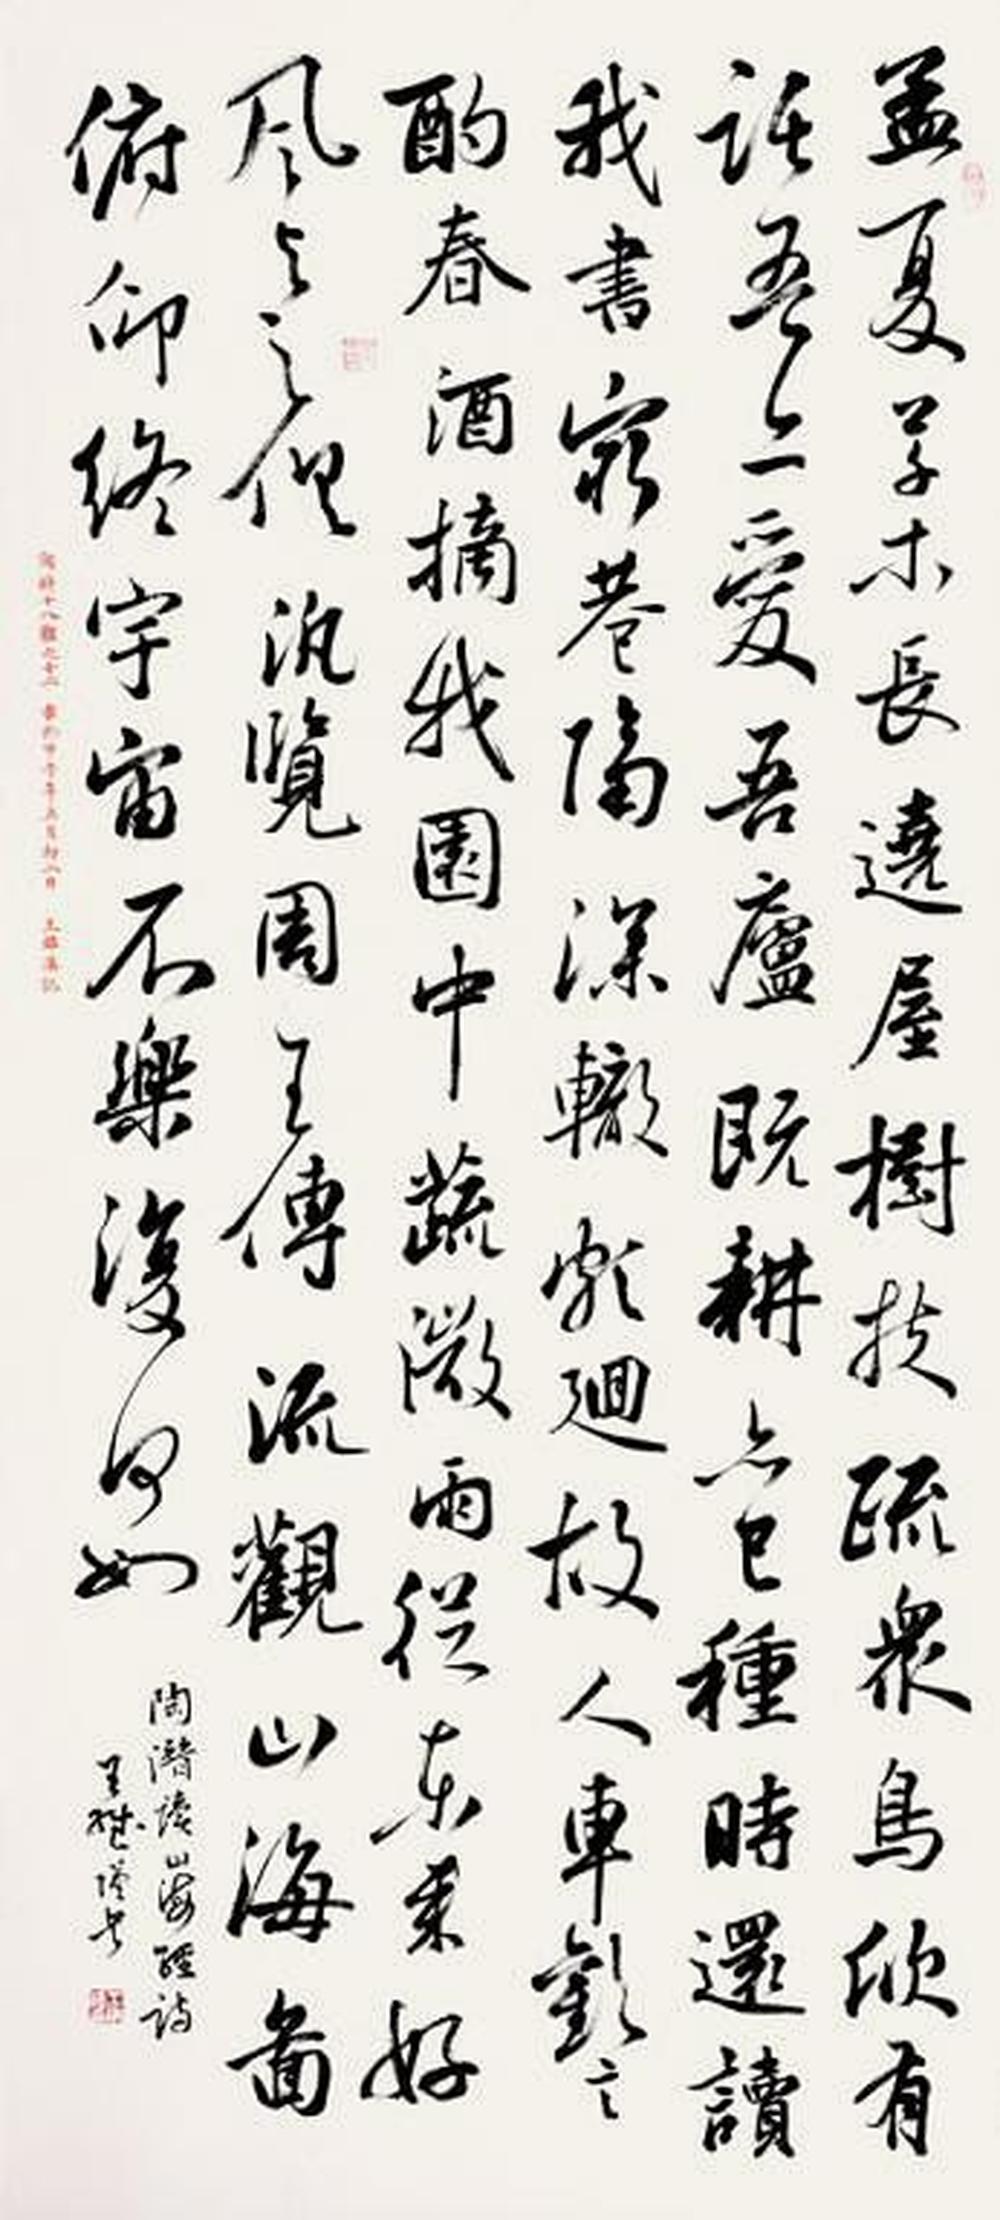 孟夏草木長遶屋樹扶疏衆鳥欣有
託吾亦愛吾廬既耕亦已種時還讀
我書窮巷隔深轍頗迴故人車歡言
酌春酒摘我園中蔬微雨從東来好
風与之俱汎覽周王傳流觀山海圖
俯仰終宇宙不樂復何如
陶潛讀山海經詩